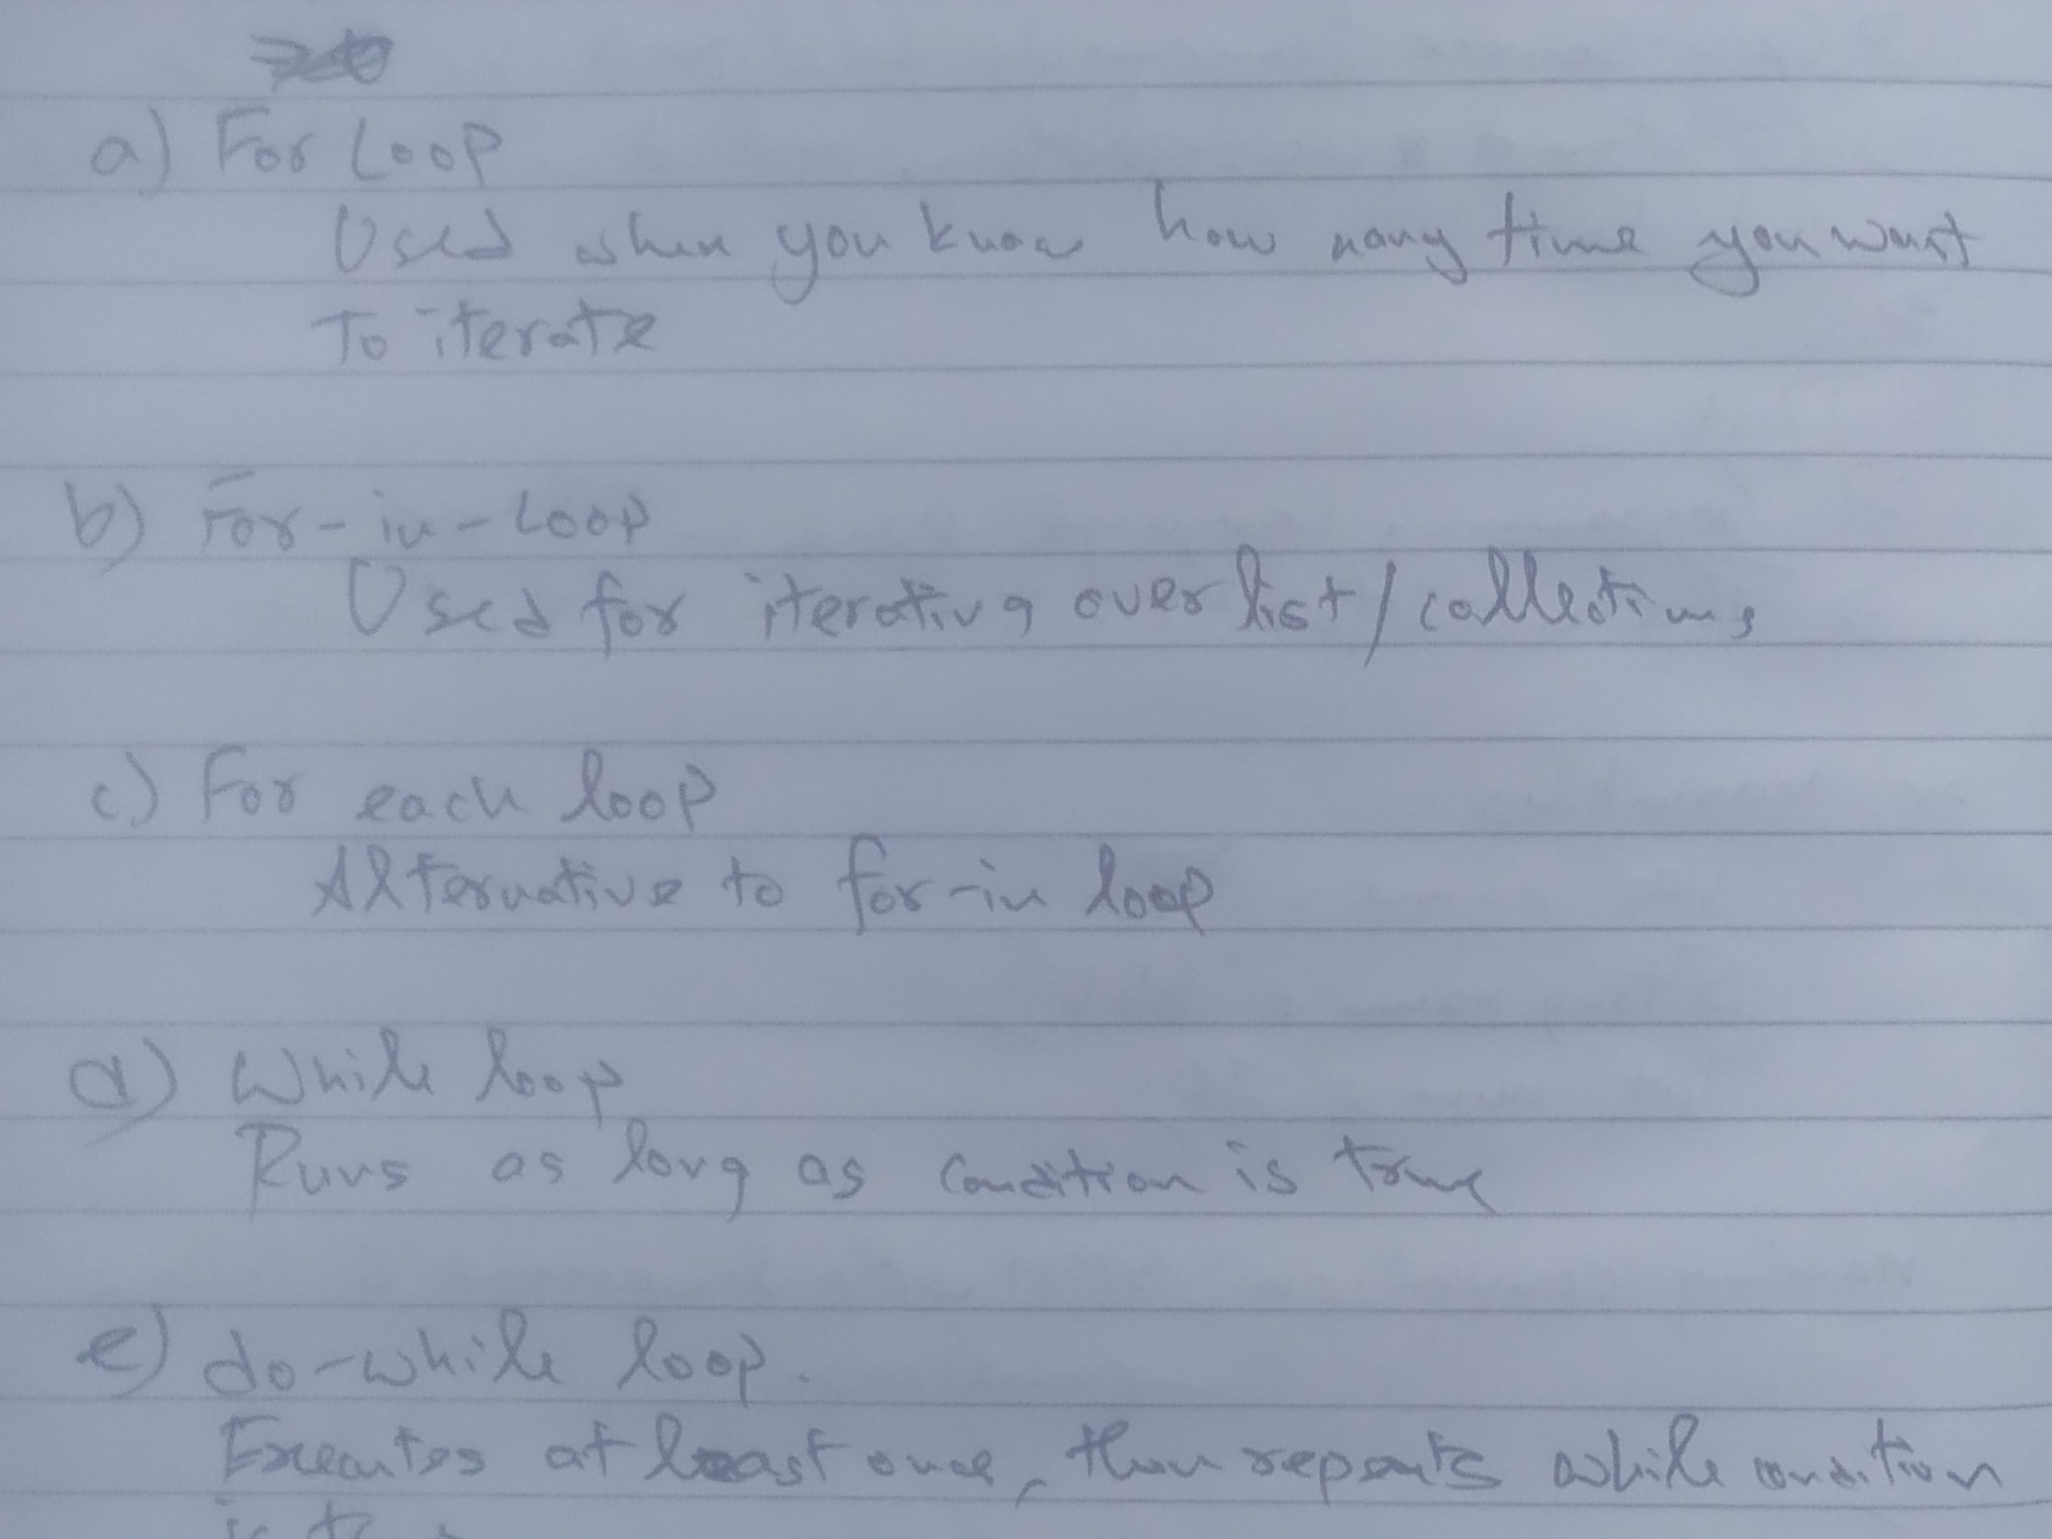 a) For Loop
Used when you know how many time you want
To iterate
b) For-in-Loop
Used for iterating over list/collections
c) For each loop
Alternative to for-in loop
d) While loop
Runs as long as condition is true
e) do-while loop.
Executes at least once, then repeats while condition
is